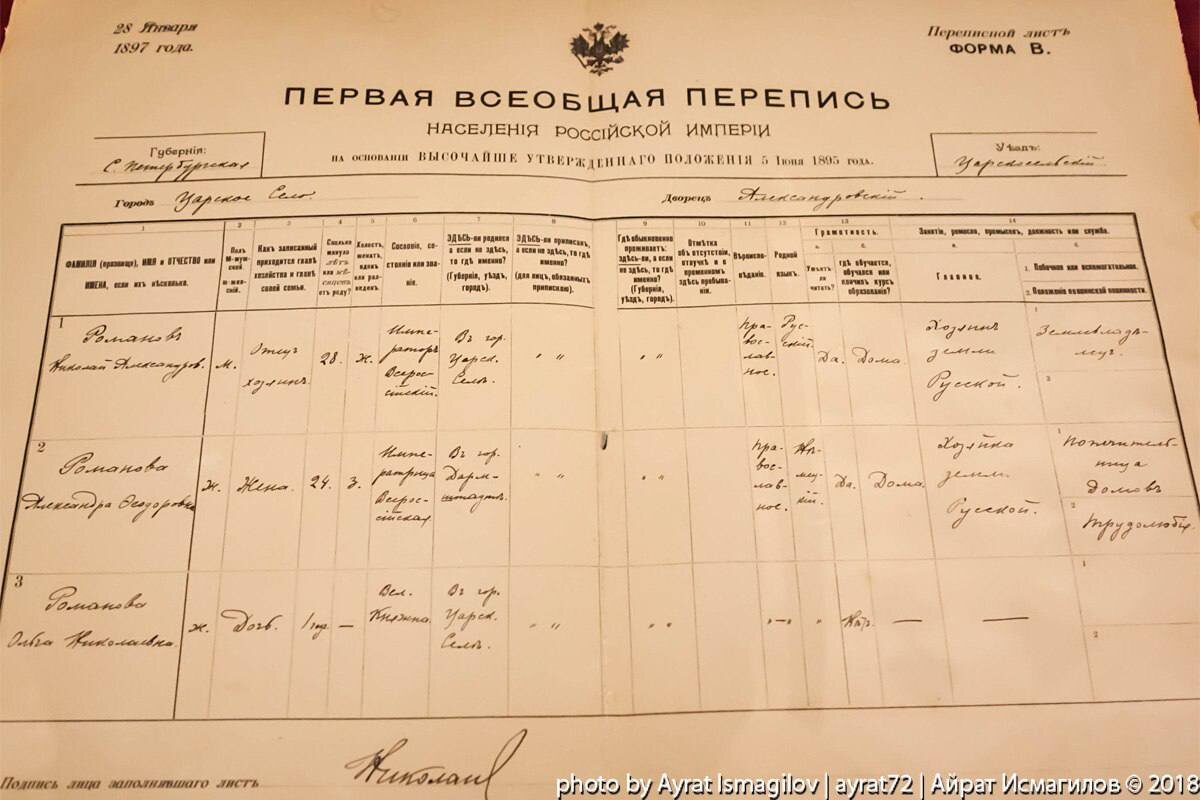 28 Января
1897 года.
Переписной листъ
ФОРМА В.
ПЕРВАЯ ВСЕОБЩАЯ ПЕРЕПИСЬ
НАСЕЛЕНІЯ РОССІЙСКОЙ ИМПЕРІИ
НА ОСНОВАНІИ ВЫСОЧАЙШЕ УТВЕРЖДЕННАГО ПОЛОЖЕНІЯ 5 Іюня 1895 года.
Губернія:
С. Петербургская
Уѣздъ:
Царскосельскій
Городъ Царское Село.
Дворецъ Александровскій.
1 2 3 4 5 6 7 8 9 10 11 12 13 14
ФАМИЛІЯ (прозвище), ИМЯ и ОТЧЕСТВО или
ИМЕНА, если ихъ нѣсколько.
Полъ
М-муж-
ской.
Ж-жен-
скій.
Какъ записанный
приходится главѣ
хозяйства и главѣ
своей семьи.
Сколько
минуло
лѣтъ
или мѣ-
сяцевъ
отъ роду?
Холостъ,
женатъ,
вдовъ
или раз-
веденъ.
Сословіе, со-
стояніе или зва-
ніе.
ЗДѢСЬ-ли родился
а если не здѣсь,
то гдѣ именно?
(Губернія, уѣздъ,
городъ).
ЗДѢСЬ-ли приписанъ,
а если не здѣсь, то гдѣ
именно?
(для лицъ, обязанныхъ
припискою).
Гдѣ обыкновенно
проживаетъ:
здѣсь-ли, а если
не здѣсь, то гдѣ
именно?
(Губернія,
уѣздъ, городъ).
Отмѣтка
объ отсутствіи,
отлучкѣ и о
временномъ
здѣсь пребыва-
ніи.
Вѣроиспо-
вѣданіе.
Родной
языкъ.
Грамотность.
а.
Умѣетъ
ли
читать?
б.
гдѣ обучается,
обучался или
кончилъ курсъ
образованія?
Занятіе, ремесло, промыселъ, должность или служба.
а.
Главное.
б.
1. Побочное или вспомогательное.
2. Положеніе по воинской повинности.
1
Романовъ
Николай Александров.
м.
Отецъ
хозяинъ
28.
ж.
Импе-
раторъ
Всерос-
сійскій.
Въ гор.
Царск.
Селѣ.
" "
" "
Пра-
вос-
лав-
ное.
Рус-
скій.
Да.
Дома.
Хозяинъ
земли
Русской.
1
Землевладѣ-
лецъ.
2
2
Романова
Александра Ѳеодоровна
Ж.
Жена.
24.
З.
Импе-
ратрица
Всерос-
сійская
Въ гор.
Дарм-
штадтѣ.
" "
" "
Пра-
вос-
лав-
ное.
Нѣ-
мец-
кій.
Да.
Дома.
Хозяйка
земли
Русской.
1
Попечитель-
ница
домовъ
2
трудолюбія.
3
Романова
Ольга Николаевна.
ж.
Дочь.
1 год
—
Вел.
Княжна.
Въ гор.
Царск.
Селѣ.
" "
" "
"–"
"
Нѣт.
—
—
1
2
Подпись лица заполнявшаго листъ
Николай
photo by Ayrat Ismagilov | ayrat72 | Айрат Исмагилов © 2018